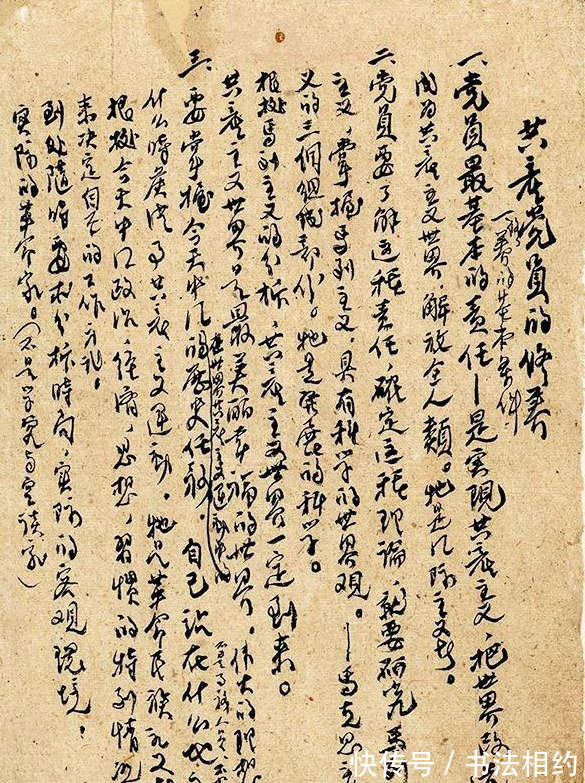 共产党员的修养
一、修养的基本条件
一、党员最基本的责任—是实现共产主义,把世界改
成为共产主义世界,解放全人类。他是国际主义者。
二、党员要了解这种责任,确定这种理论,就要研究马
主义,掌握马列主义,具有科学的世界观。—马克思主
义的三个组织部分。他是完整的科学。
根据马列主义的分析,共产主义世界一定到来。
共产主义世界是最美丽幸福的世界。伟大的理想
三、要掌握今天中国的历史任务,自己站在什么
在世界共产主义运动
什么时候从事共产主义运动。他是革命民族
根据今天中国政治,经济,思想,习惯的特别情况
来决定自己的工作方针。
到处随时要求分析时局,实际的客观环境!
实际的革命家。(不是学究与空谈家)
快传号 / 书法相约